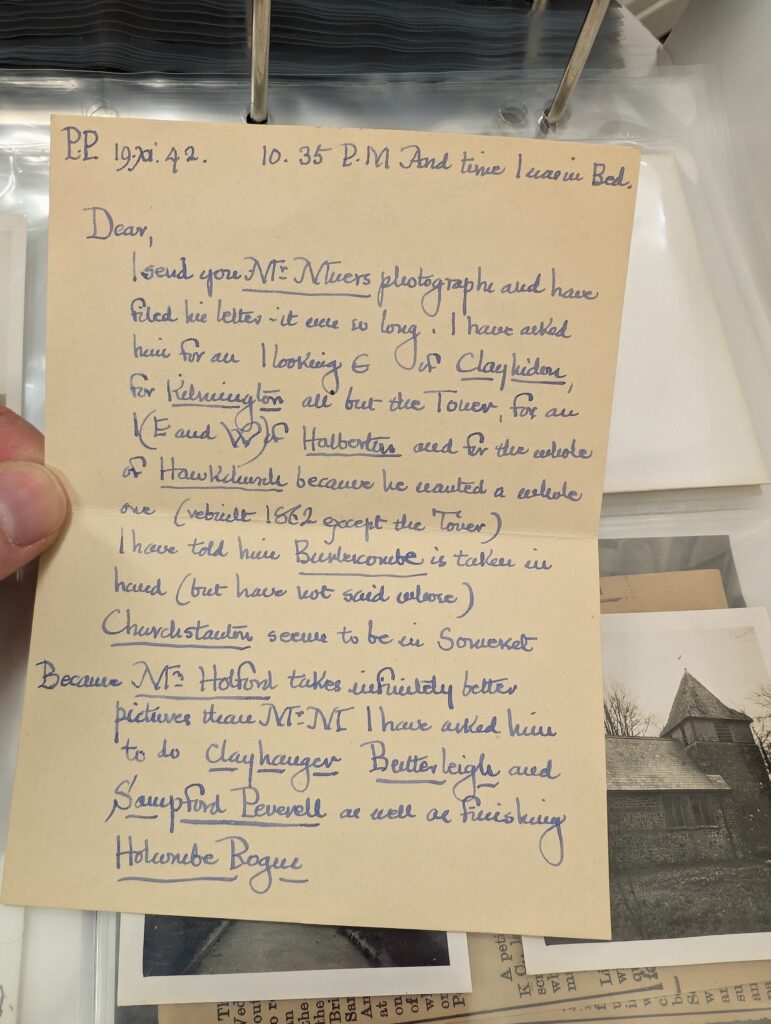 P.P. 19.xi.42. 10.35 P.M And time I was in Bed.
Dear,
I send you Mr. Miers photographs and have
filed his letter - it was so long. I have asked
him for an I looking E of Clayhidon,
for Kilmington all but the Tower, for an
I (E and W) of Halberton and for the whole
of Hawkchurch because he wanted a whole
one (rebuilt 1862 except the Tower)
I have told him Burlescombe is taken in
hand (but have not said whose)
Churchstanton seems to be in Somerset
Because Mr. Holford takes infinitely better
pictures than Mr. M I have asked him
to do Clayhanger Butterleigh and
Sampford Peverell as well as finishing
Holcombe Rogus
A peti
K.C.